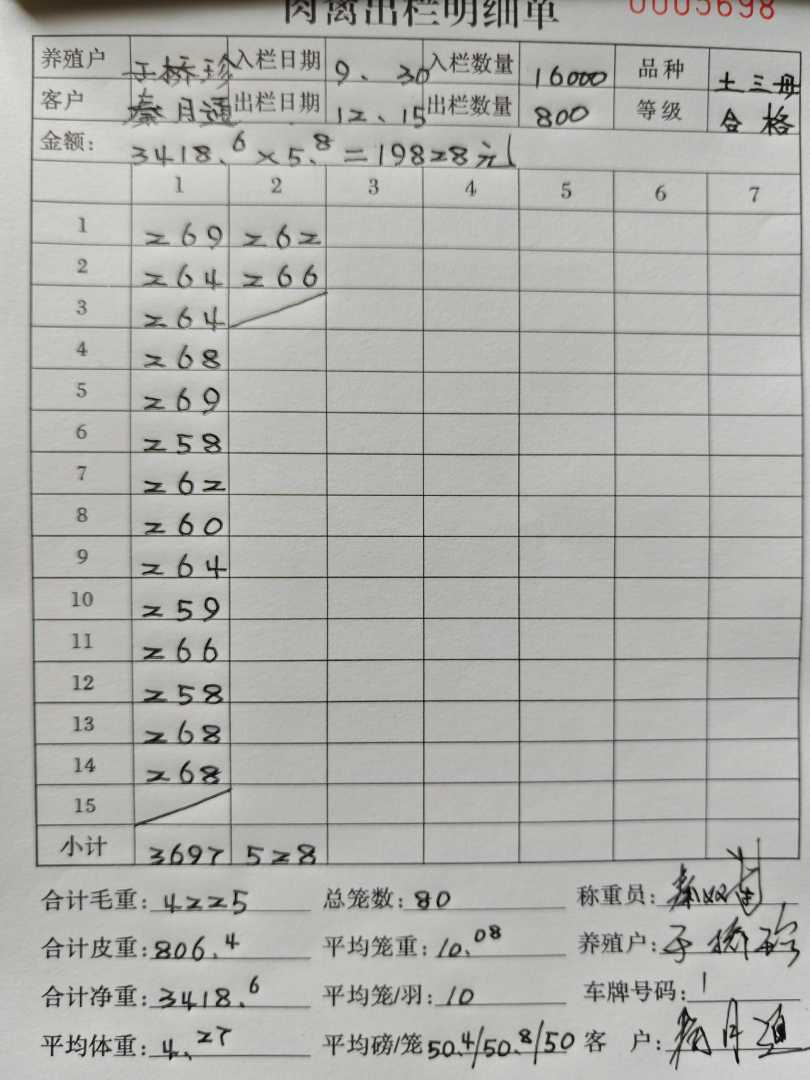 肉禽出栏明细单 0005698
养殖户 于桥珍 入栏日期 9.30 入栏数量 16000 品种 土三母
客户 秦月通 出栏日期 12.15 出栏数量 800 等级 合格
金额: 3418.6×5.8=19828元
1 2 3 4 5 6 7
1 269 262
2 264 266
3 264
4 268
5 269
6 258
7 262
8 260
9 264
10 259
11 266
12 258
13 268
14 268
15
小计 3697 528
合计毛重: 4225 总笼数: 80 称重员:
合计皮重: 806.4 平均笼重: 10.08 养殖户: 于桥珍
合计净重: 3418.6 平均笼/羽: 10 车牌号码: 1
平均体重: 4.27 平均磅/笼 50.4/50.8/50 客 户: 秦月通